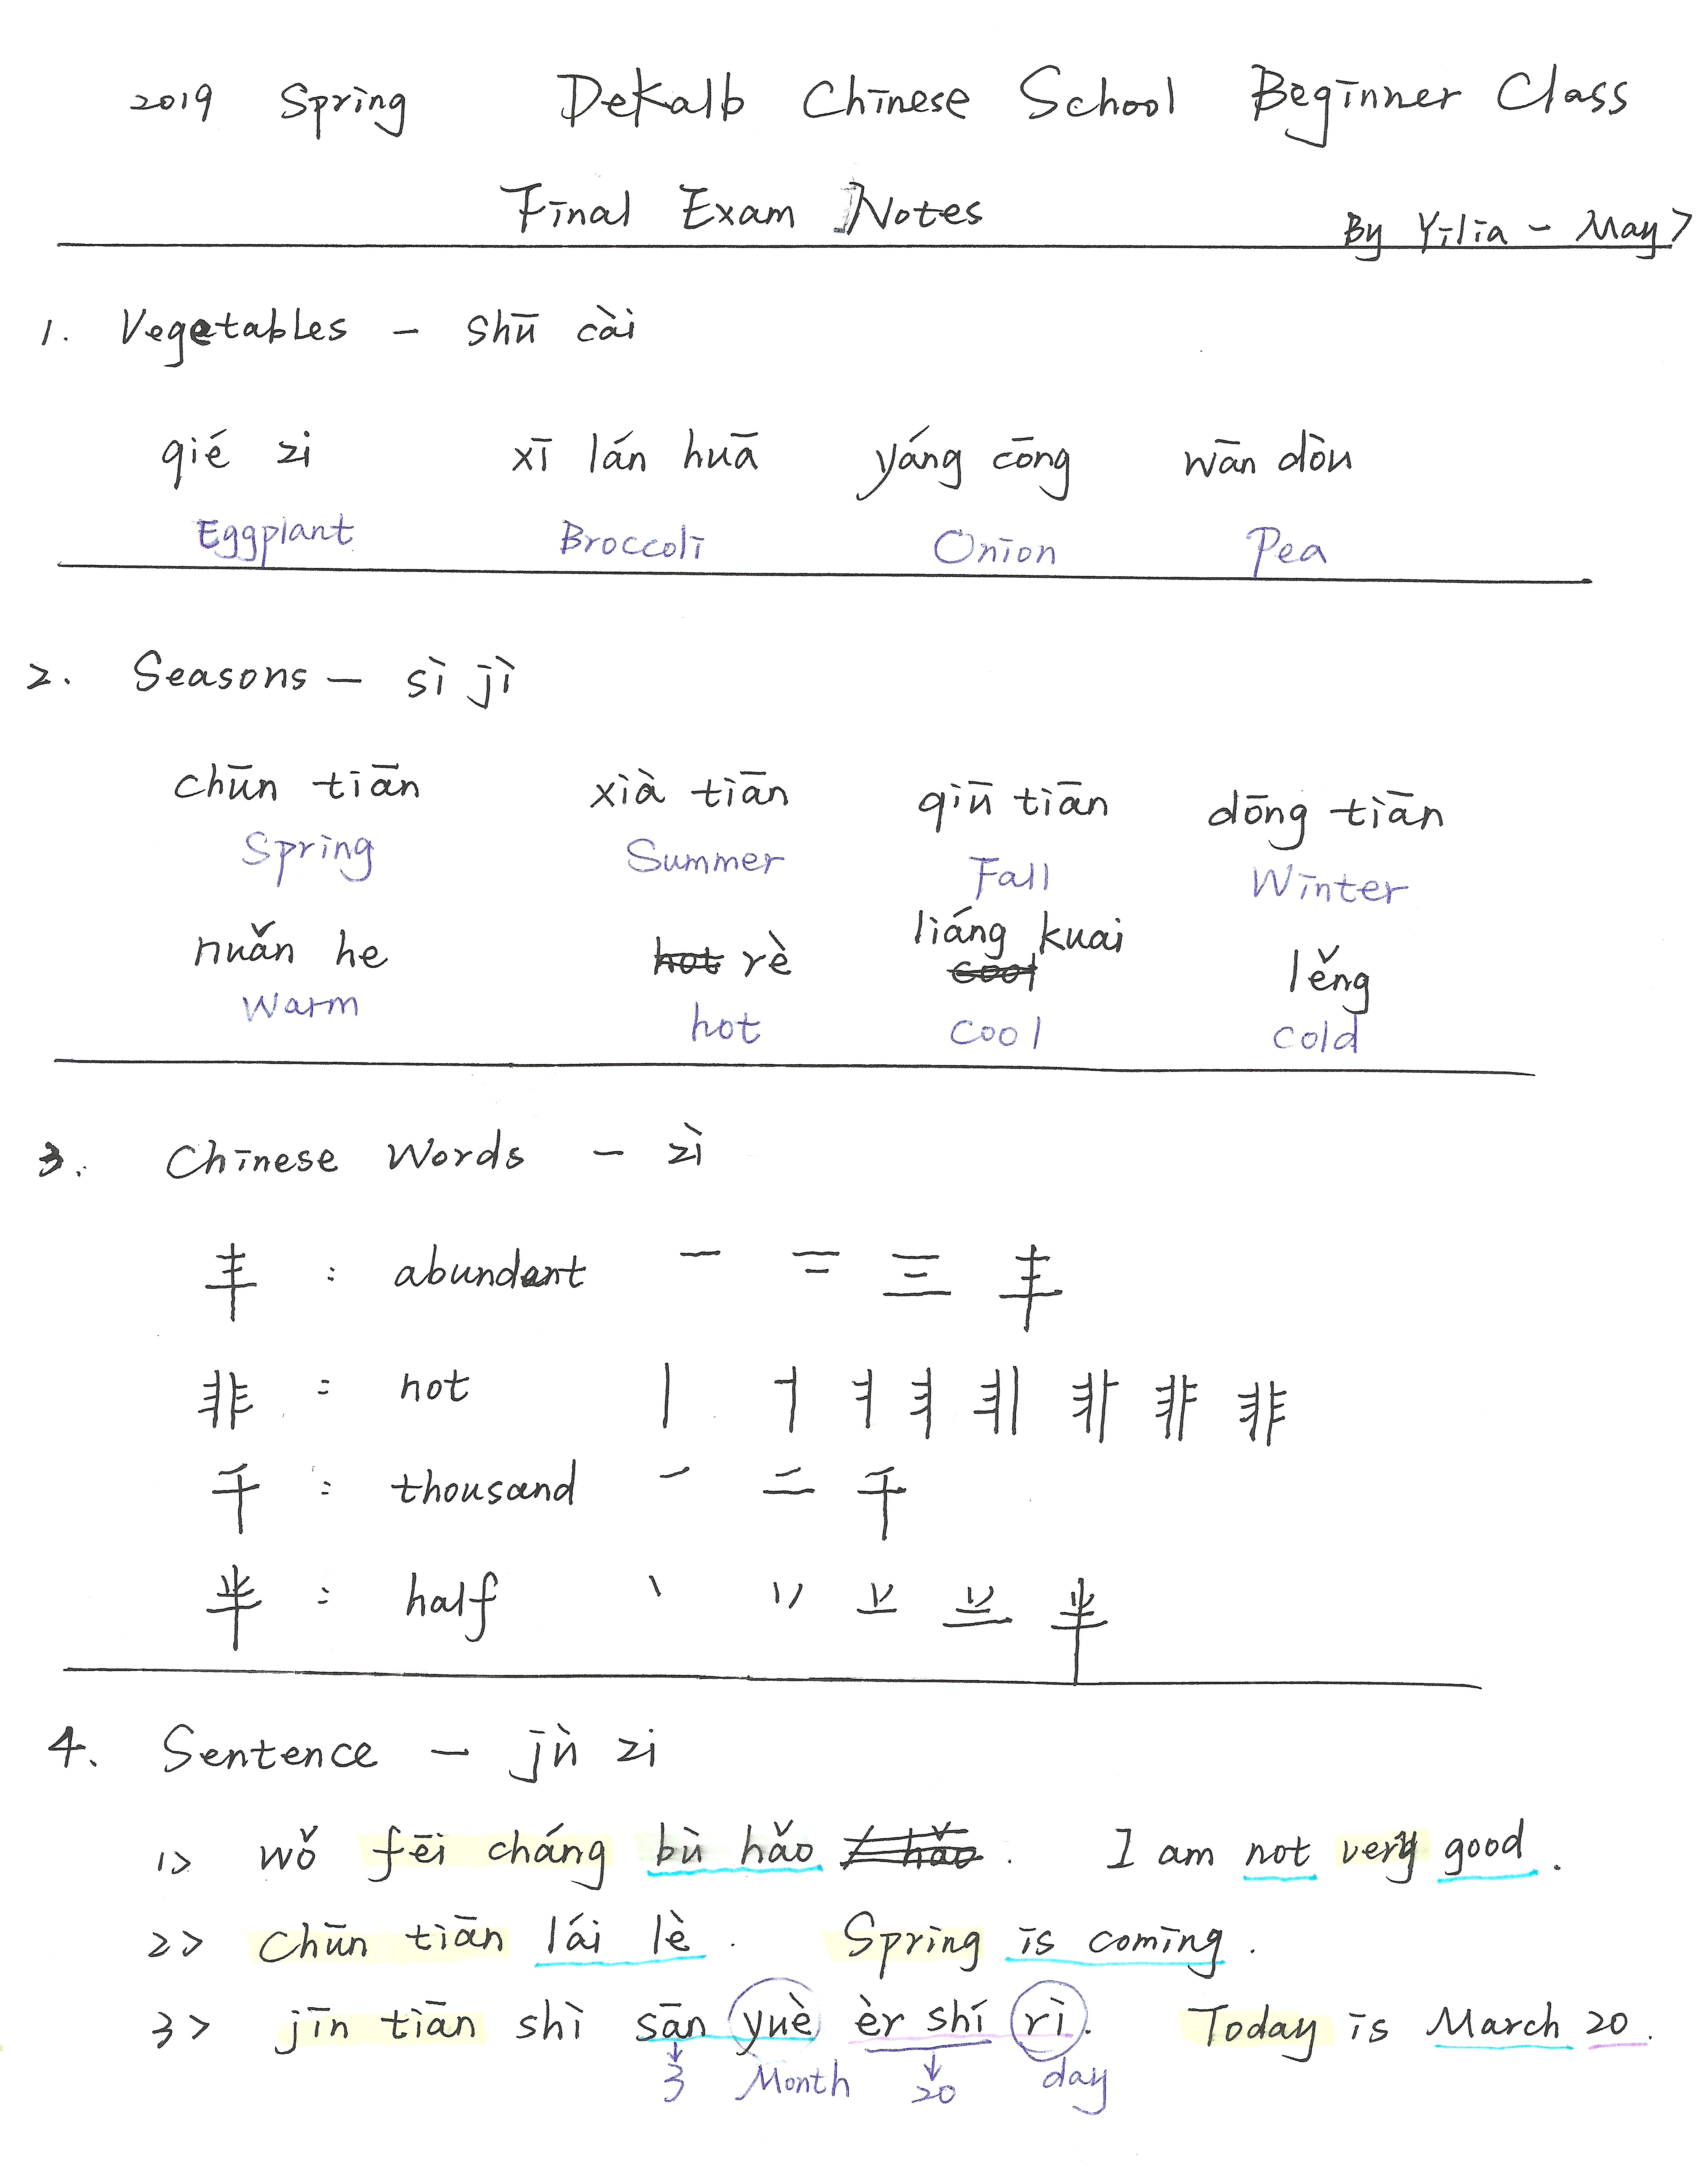 2019 Spring DeKalb Chinese School Beginner Class
Final Exam Notes
By Yilia - May 7
1. Vegetables - shū cài
qié zi xī lán huā yáng cōng wān dòu
Eggplant Broccoli Onion Pea
2. Seasons - sì jì
chūn tiān xià tiān qiū tiān dōng tiān
Spring Summer Fall Winter
nuǎn he hot rè liáng kuai cool lěng
Warm hot cool cold
3. Chinese Words - zì
丰 : abundant 一 二 三 丰
非 : not 丨 非
千 : thousand 千
半 : half 丶 半
4. Sentence - jù zi
1> wǒ fēi cháng bù hǎo hǎo. I am not very good.
2> Chūn tiān lái lè. Spring is coming.
3> jīn tiān shì sān yuè èr shí rì. Today is March 20.
3 Month 20 day